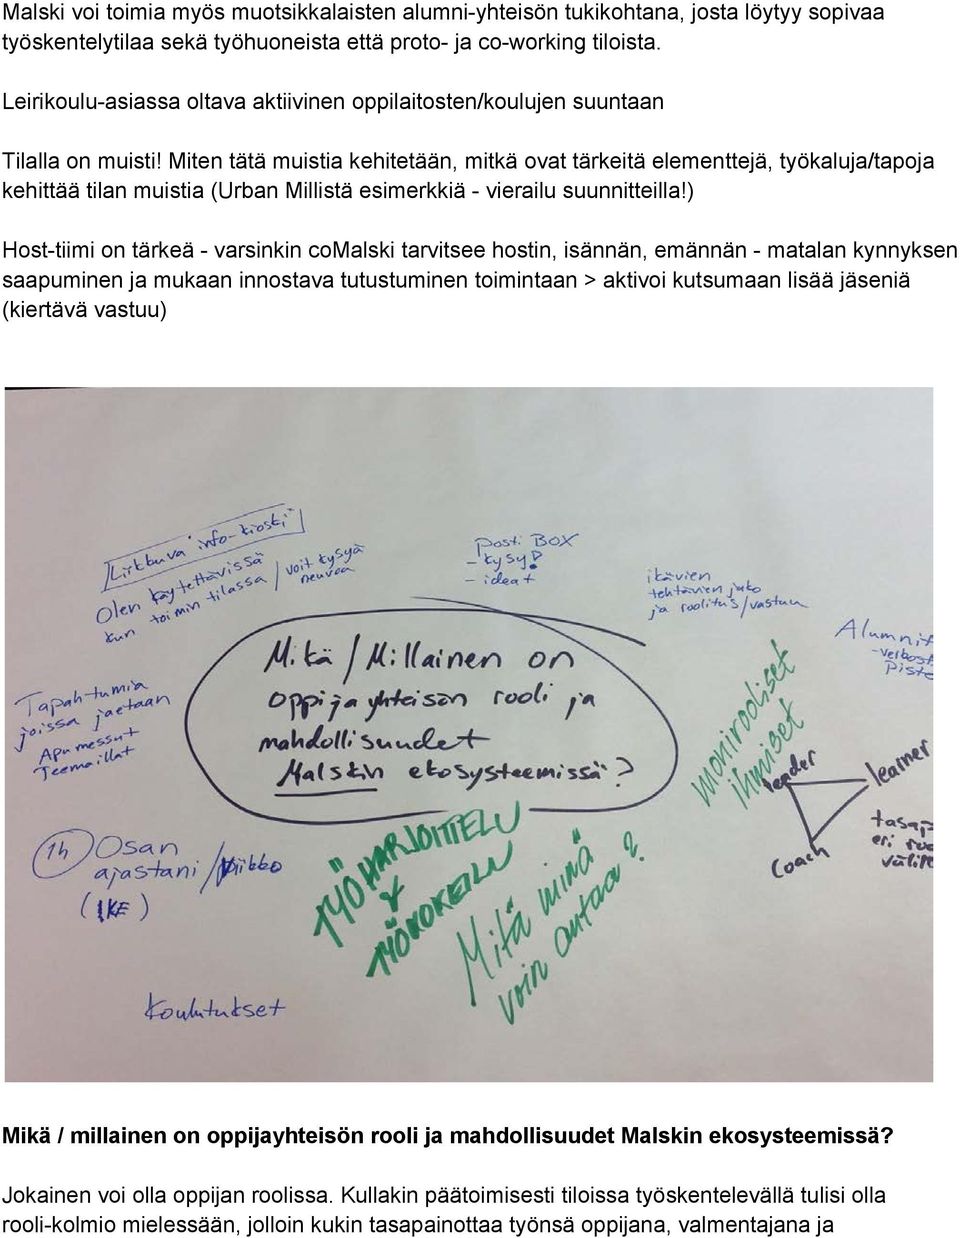 Malski voi toimia myös muotsikkalaisten alumni-yhteisön tukikohtana, josta löytyy sopivaa
työskentelytilaa sekä työhuoneista että proto- ja co-working tiloista.
Leirikoulu-asiassa oltava aktiivinen oppilaitosten/koulujen suuntaan
Tilalla on muisti! Miten tätä muistia kehitetään, mitkä ovat tärkeitä elementtejä, työkaluja/tapoja
kehittää tilan muistia (Urban Millistä esimerkkiä - vierailu suunnitteilla!)
Host-tiimi on tärkeä - varsinkin coMalski tarvitsee hostin, isännän, emännän - matalan kynnyksen
saapuminen ja mukaan innostava tutustuminen toimintaan > aktivoi kutsumaan lisää jäseniä
(kiertävä vastuu)
Liikkuva "info-kioski"
Olen käytettävissä
kun toimin tilassa / voit kysyä
neuvoa
Posti BOX
- kysy!
- ideat
ikävien
tehtävien jako
ja roolitus/vastuu
Alumnit
-verkost
Piste
Tapahtumia
joissa jaetaan
Apumessut
Teemaillat
Mikä / Millainen on
oppijayhteisön rooli ja
mahdollisuudet
Malskin ekosysteemissä?
moniroooliset
ihmiset
leader
learner
coach
tasap
eri roo
välill
1h Osan
ajastani / Viikko
(IKE)
TYÖHARJOITTELU
&
TYÖKOKEILU
Mitä minä
voin antaa?
Koulutukset
Mikä / millainen on oppijayhteisön rooli ja mahdollisuudet Malskin ekosysteemissä?
Jokainen voi olla oppijan roolissa. Kullakin päätoimisesti tiloissa työskentelevällä tulisi olla
rooli-kolmio mielessään, jolloin kukin tasapainottaa työnsä oppijana, valmentajana ja